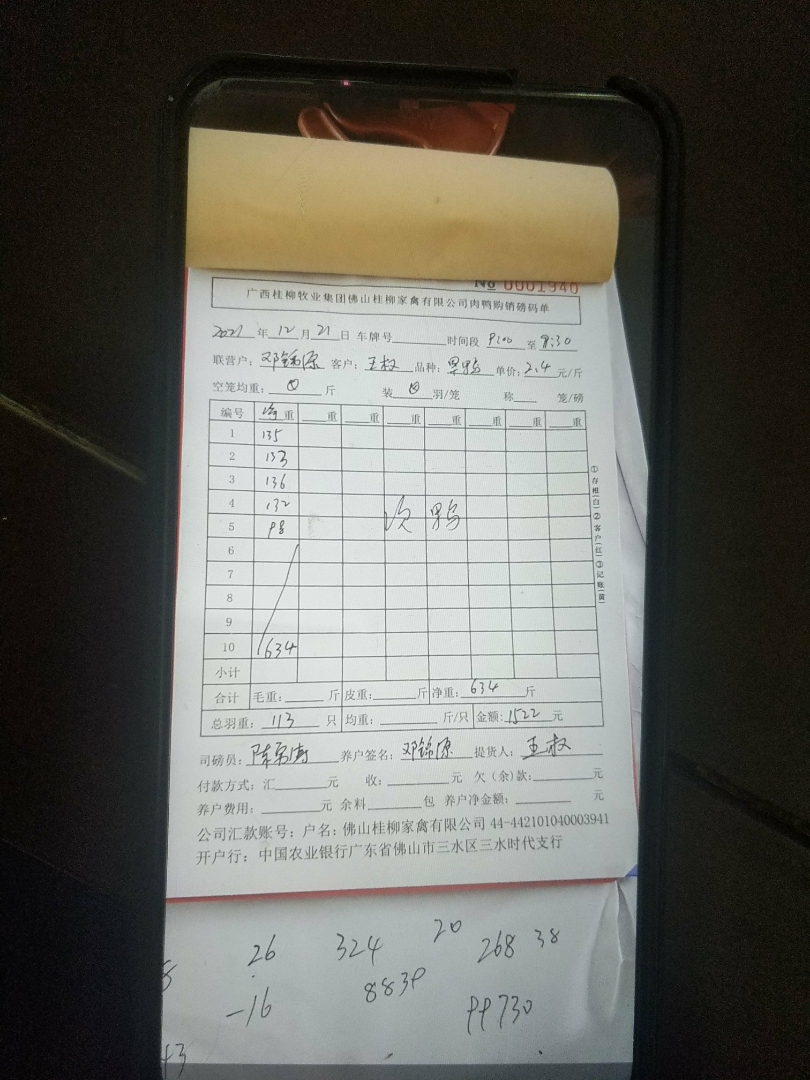 No 0001940
广西桂柳牧业集团佛山桂柳家禽有限公司肉鸭购销磅码单
2021年12月21日 车牌号 时间段 9:00 至 9:30
联营户：邓锦源 客户：王叔 品种：果鸭 单价：2.4元/斤
空笼均重： 斤 装 羽/笼 称 笼/磅
编号 净重 重 重 重 重 重 重 重
1 135
2 133
3 136
4 132
5 98
次鸭
6
7
8
9
10 634
小计
合计 毛重： 斤 皮重： 斤 净重：634 斤
总羽重：113 只 均重： 斤/只 金额：1522 元
①存根(白)②客户(红)③记账(黄)
司磅员： 养户签名：邓锦源 提货人：王叔
付款方式：汇 元 收： 元 欠(余)款： 元
养户费用： 元 余料 包 养户净金额： 元
公司汇款账号：户名：佛山桂柳家禽有限公司 44-442101040003941
开户行：中国农业银行广东省佛山市三水区三水时代支行
26 324 20 268 38
-16 8839 99730
43